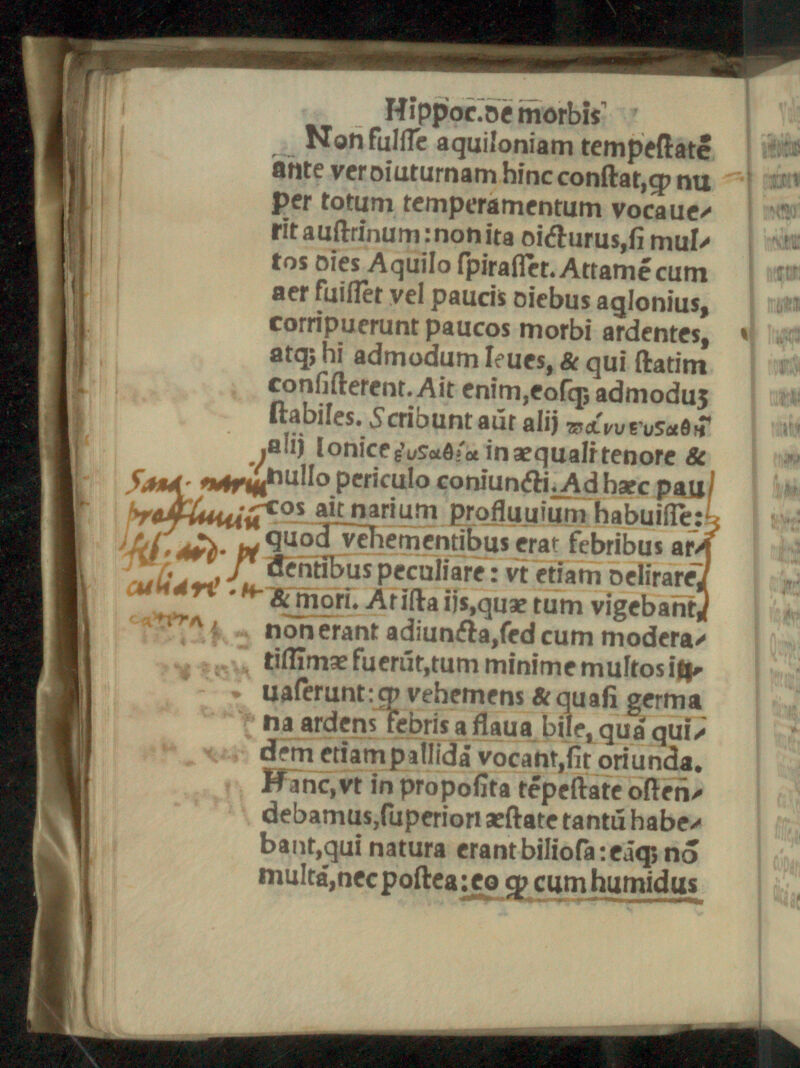 Hippoc.de morbis
Non fuisse aquiloniam tempestatē
ante ver diuturnam hinc constat, ꝙ nu
per totum temperamentum vocaue⸗
rit austrinum: non ita dicturus, si mul⸗
tos dies Aquilo spirasset. Attamē cum
aer fuisset vel paucis diebus aqlonius,
corripuerunt paucos morbi ardentes,
atq; hi admodum leues, & qui statim
consisterent. Ait enim, eosq; admoduʒ
stabiles. Scribunt aūt alij πάνυ εὐσταθῆ
alij Ionice εὐσταθέα in æquali tenore &
nullo periculo coniuncti. Ad hæc pau
cos ait narium profluuium habuisse:
quod vehementibus erat febribus ar⸗
dentibus peculiare: vt etiam delirare,
& mori. At ista ijs, quæ tum vigebant,
non erant adiuncta, sed cum modera⸗
tissimæ fuerūt, tum minime multos in⸗
uaserunt: ꝙ vehemens & quasi germa
na ardens febris a flaua bile, quā qui⸗
dem etiam pallidā vocant, sit oriunda.
Hanc, vt in proposita tēpestate osten⸗
debamus, superiori æstate tantū habe⸗
bant, qui natura erant biliosa: eāq; nō
multā, nec postea: eo ꝙ cum humidus
Sang. nariū
profluuiū
feb. ard. pe
culiare.